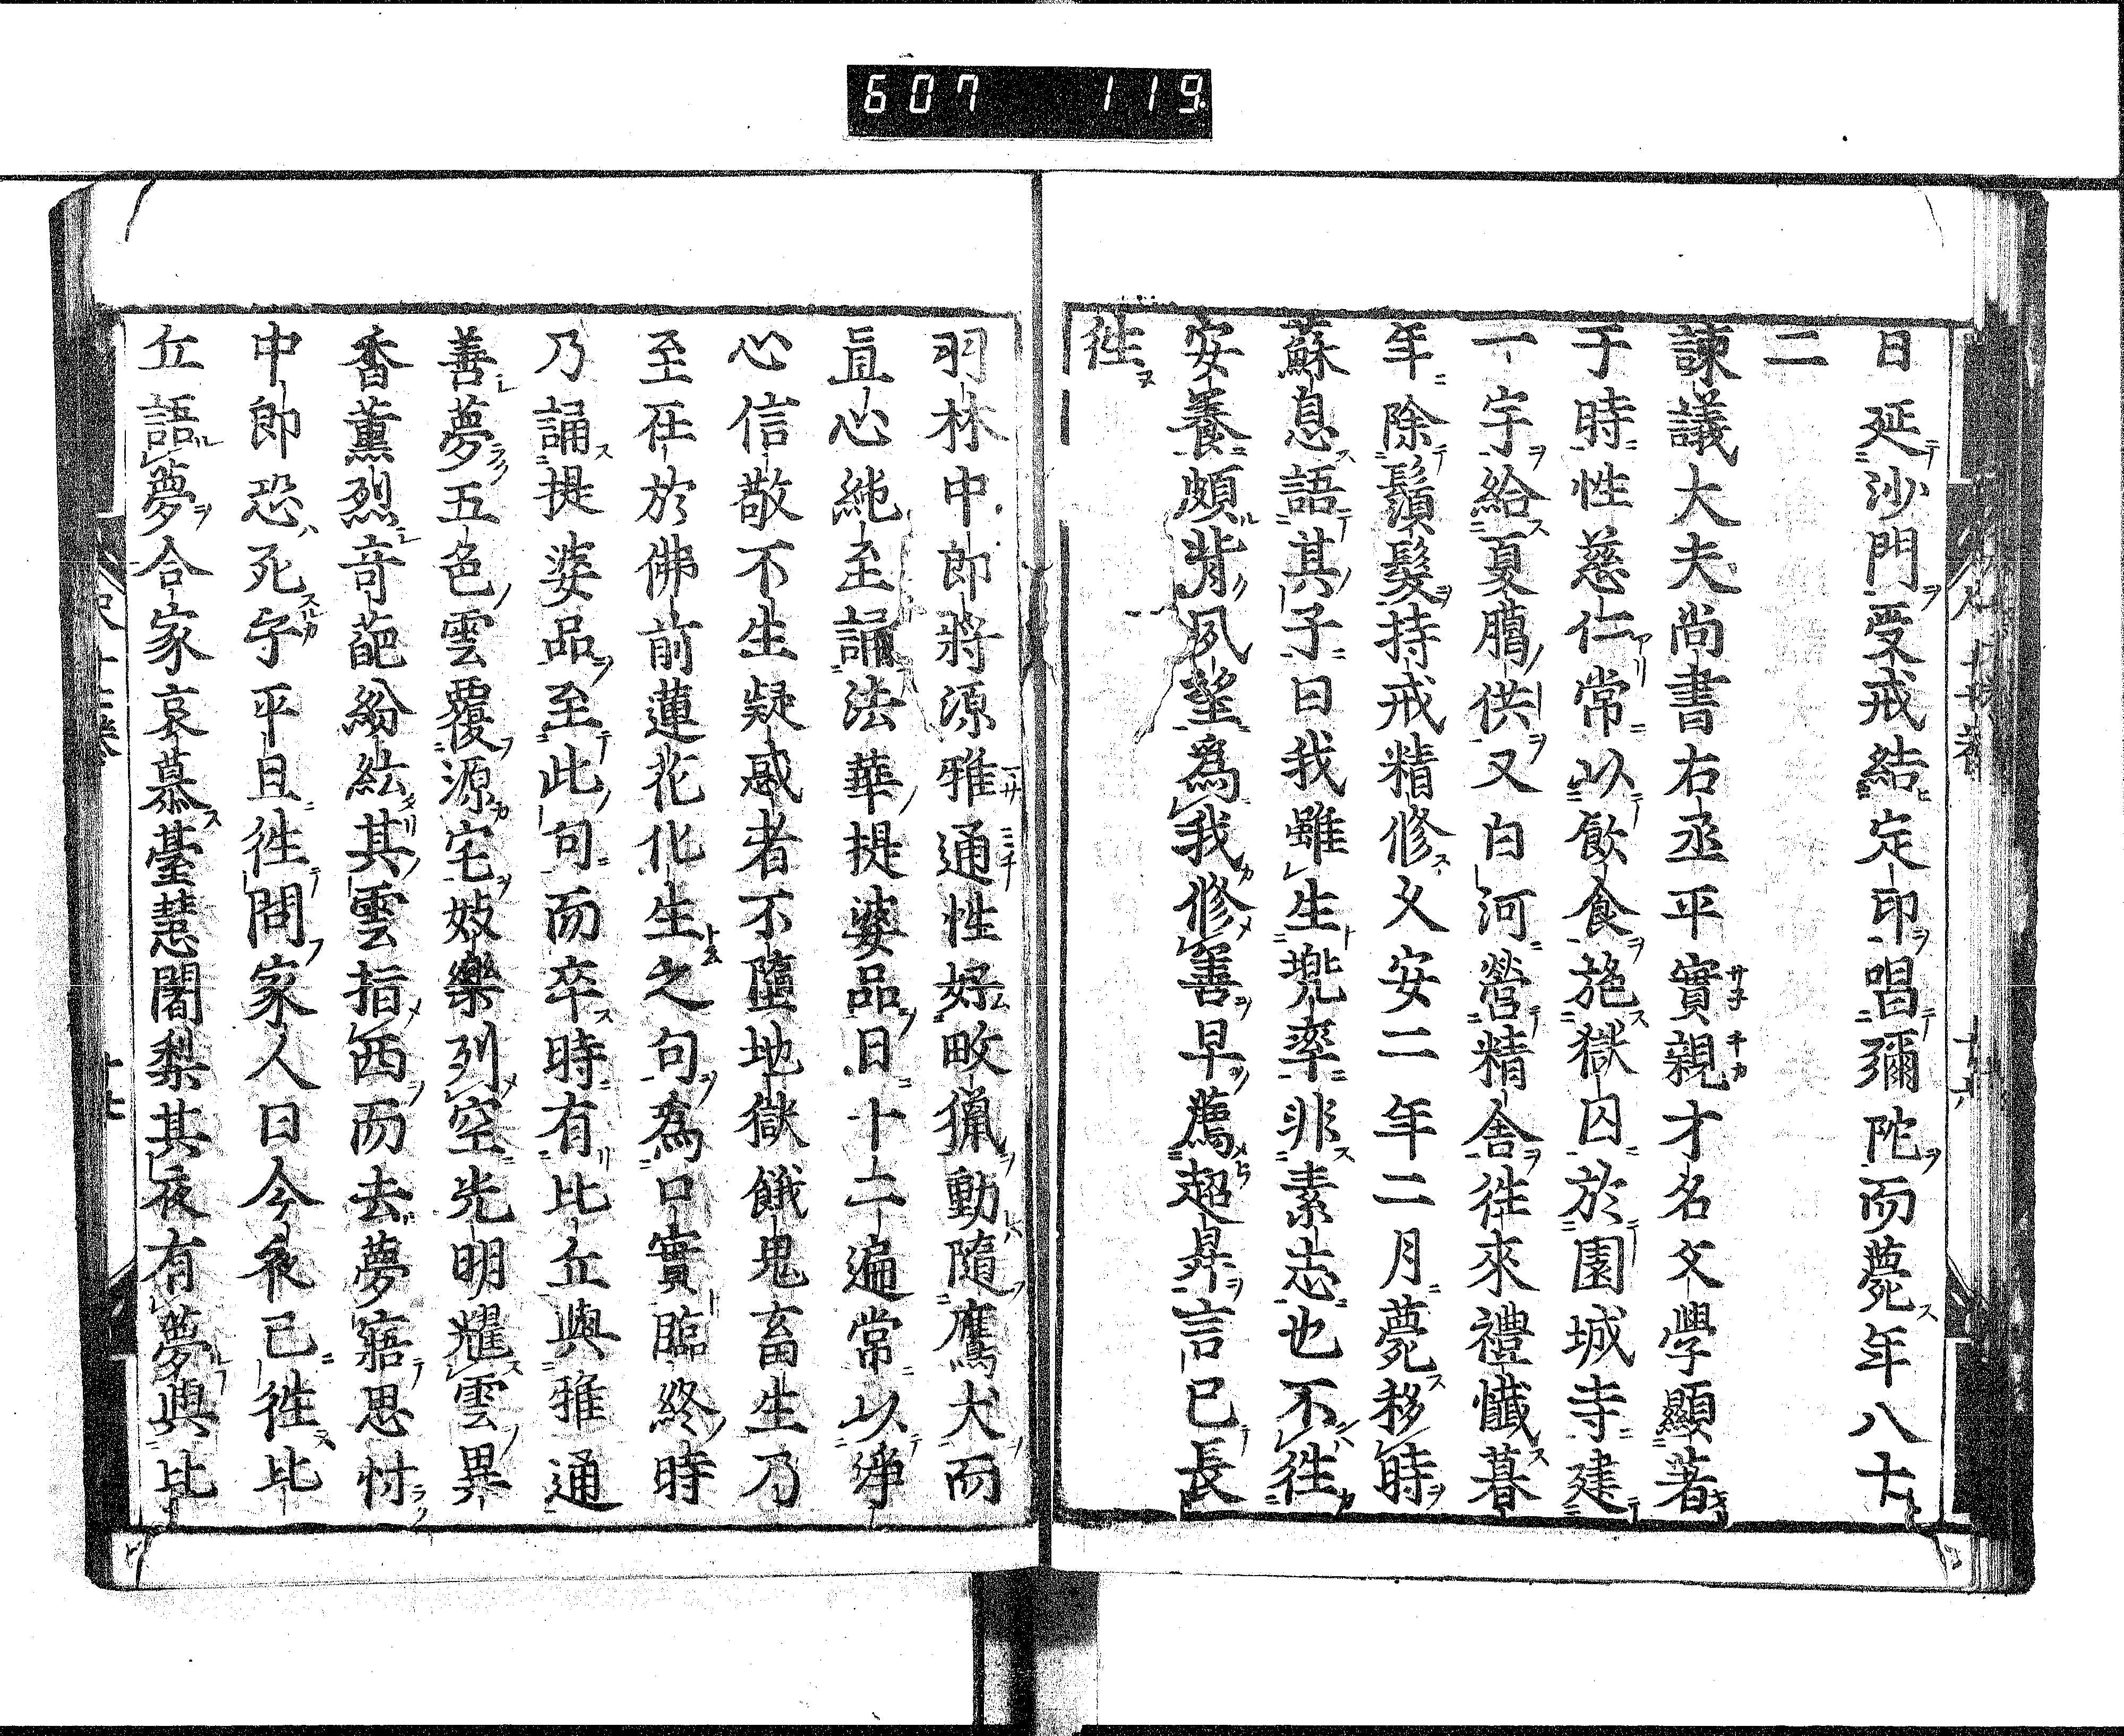 607 119
日延沙門受戒結定印唱彌陀而薨年八十
二
諫議大夫尚書右丞平實親才名文學顯著
于時性慈仁常以飲食施獄囚於園城寺建
一宇給夏臈供又白河營精舍徃來禮懺暮
年除鬚髮持戒精修久安二年二月薨移時
蘇息語其子曰我雖生兜率非素志也不徃
安養頗背夙望爲我修善早薦超昇言已長
徃
羽林中郎將源雅通性好畋獵動隨鷹犬而
直心純至誦法華提婆品日十二遍常以淨
心信敬不生疑惑者不墮地獄餓鬼畜生乃
至在於佛前蓮花化生之句爲口實臨終時
乃誦提婆品至此句而卒時有比丘與雅通
善夢五色雲覆源宅妓樂列空光明耀雲異
香薰烈奇葩紛紜其雲指西而去夢寤思忖
中郎恐死乎平旦徃問家人曰今夜已徃比
丘語夢合家哀慕臺慧闍梨其夜有夢與比